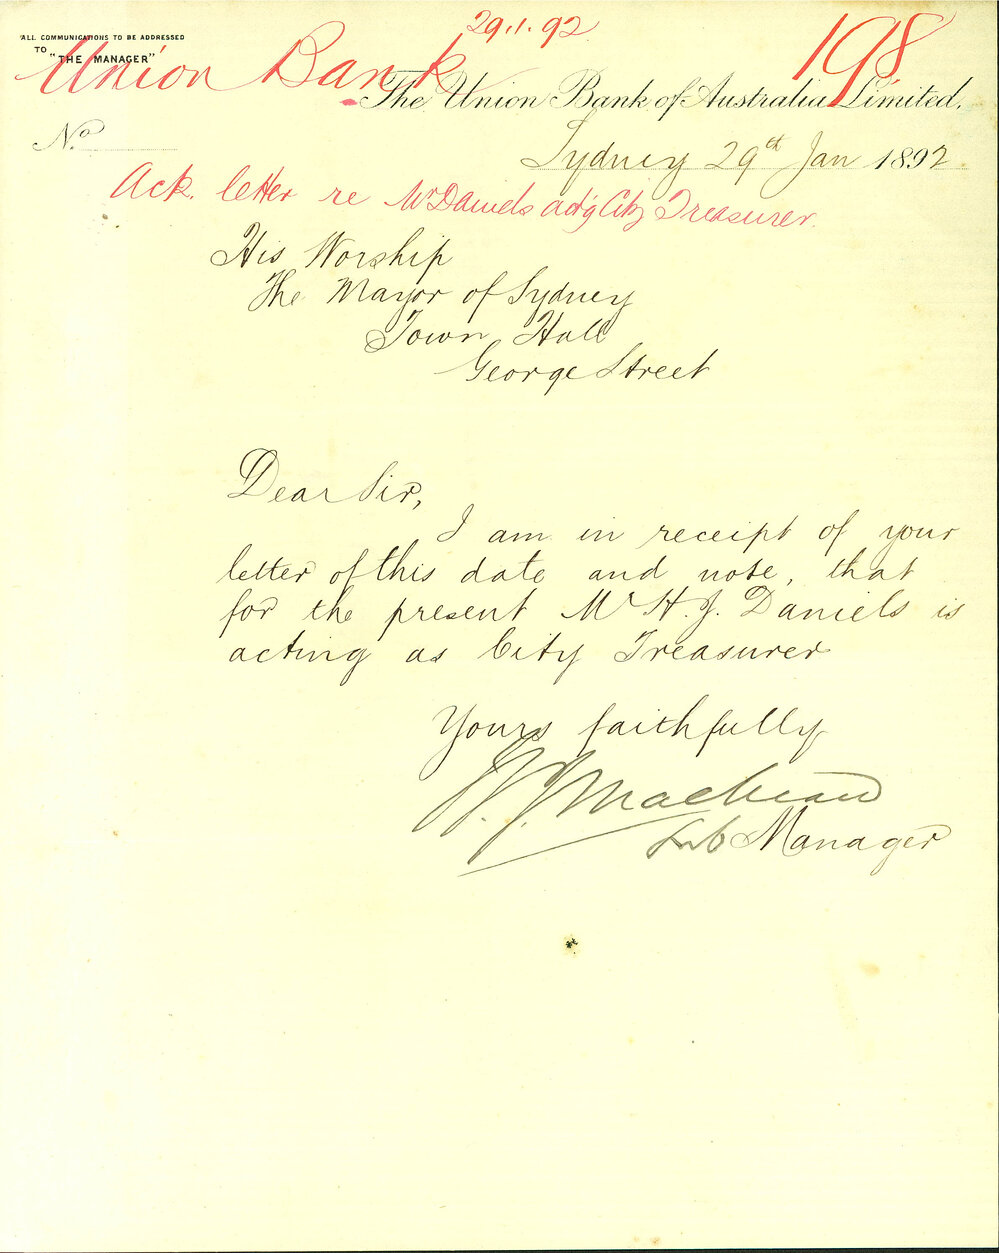 29.1.92
198
ALL COMMUNICATIONS TO BE ADDRESSED
TO "THE MANAGER"
Union Bank
The Union Bank of Australia Limited.
No.
Sydney 29th Jan 1892
Ack. letter re Mr Daniels act'g City Treasurer.
His Worship
The Mayor of Sydney
Town Hall
George Street
Dear Sir,
I am in receipt of your
letter of this date and note, that
for the present Mr H. J. Daniels is
acting as City Treasurer
Yours faithfully
Manager